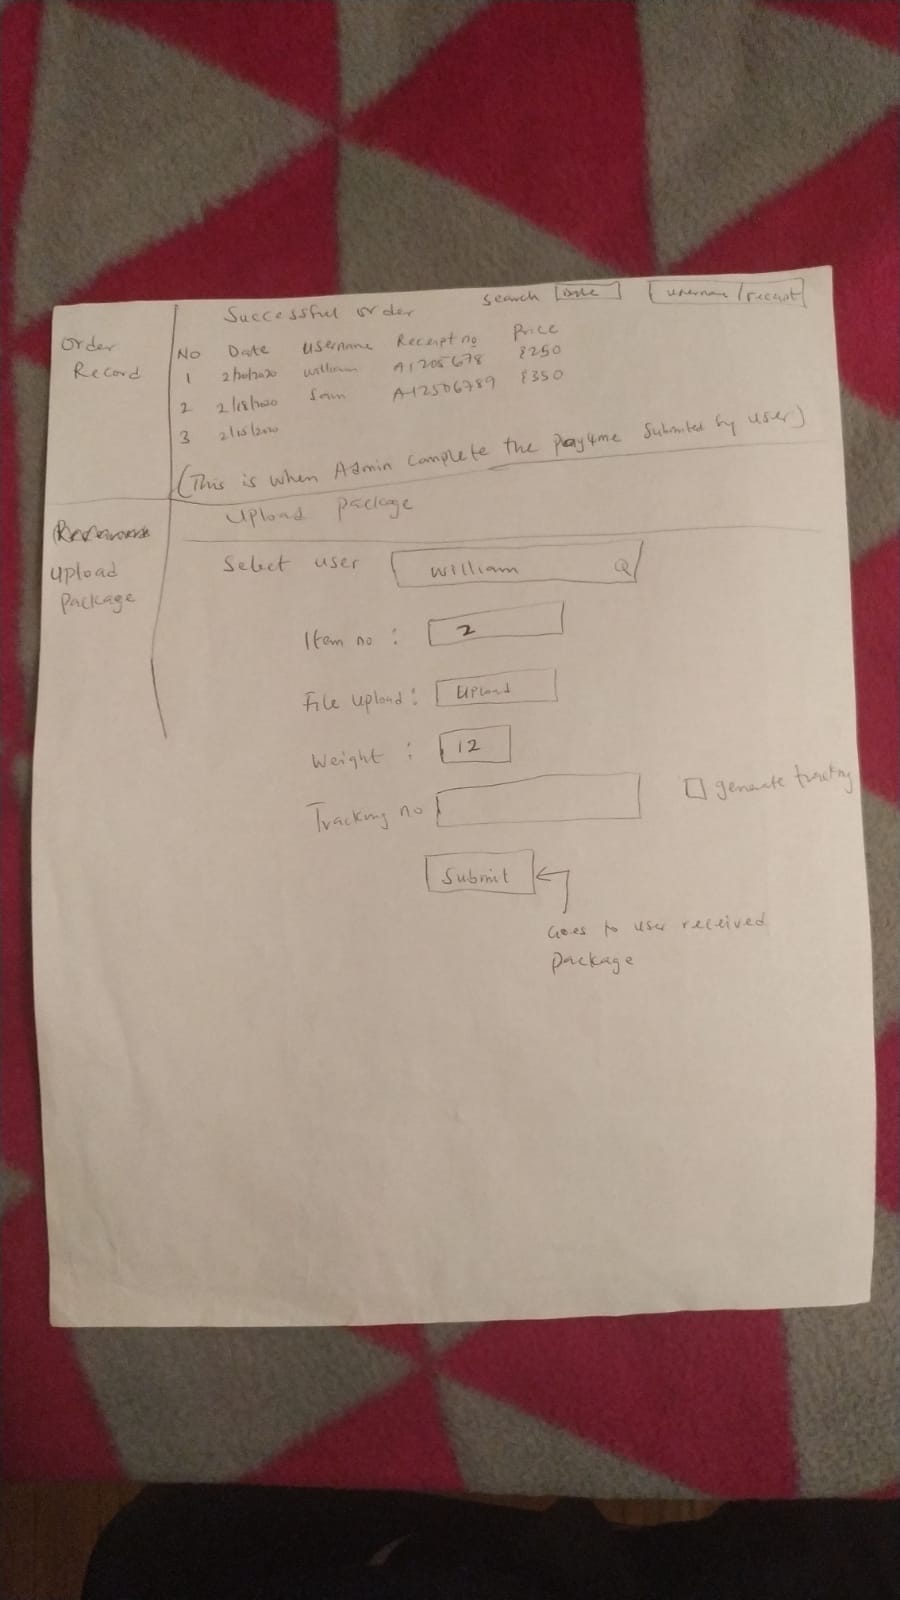 Order
Record
Successful order
Search Date username/receipt
No Date username Receipt no Price
1 2/20/2020 william A1205678 $250
2 2/18/2020 Sam A12506789 $350
3 2/15/2020
(This is when Admin complete the pay4me submited by user)
Upload package
Upload
package
Select user william
Item no : 2
File upload : Upload
Weight : 12
Tracking no generate tracking
Submit
Goes to user received
package